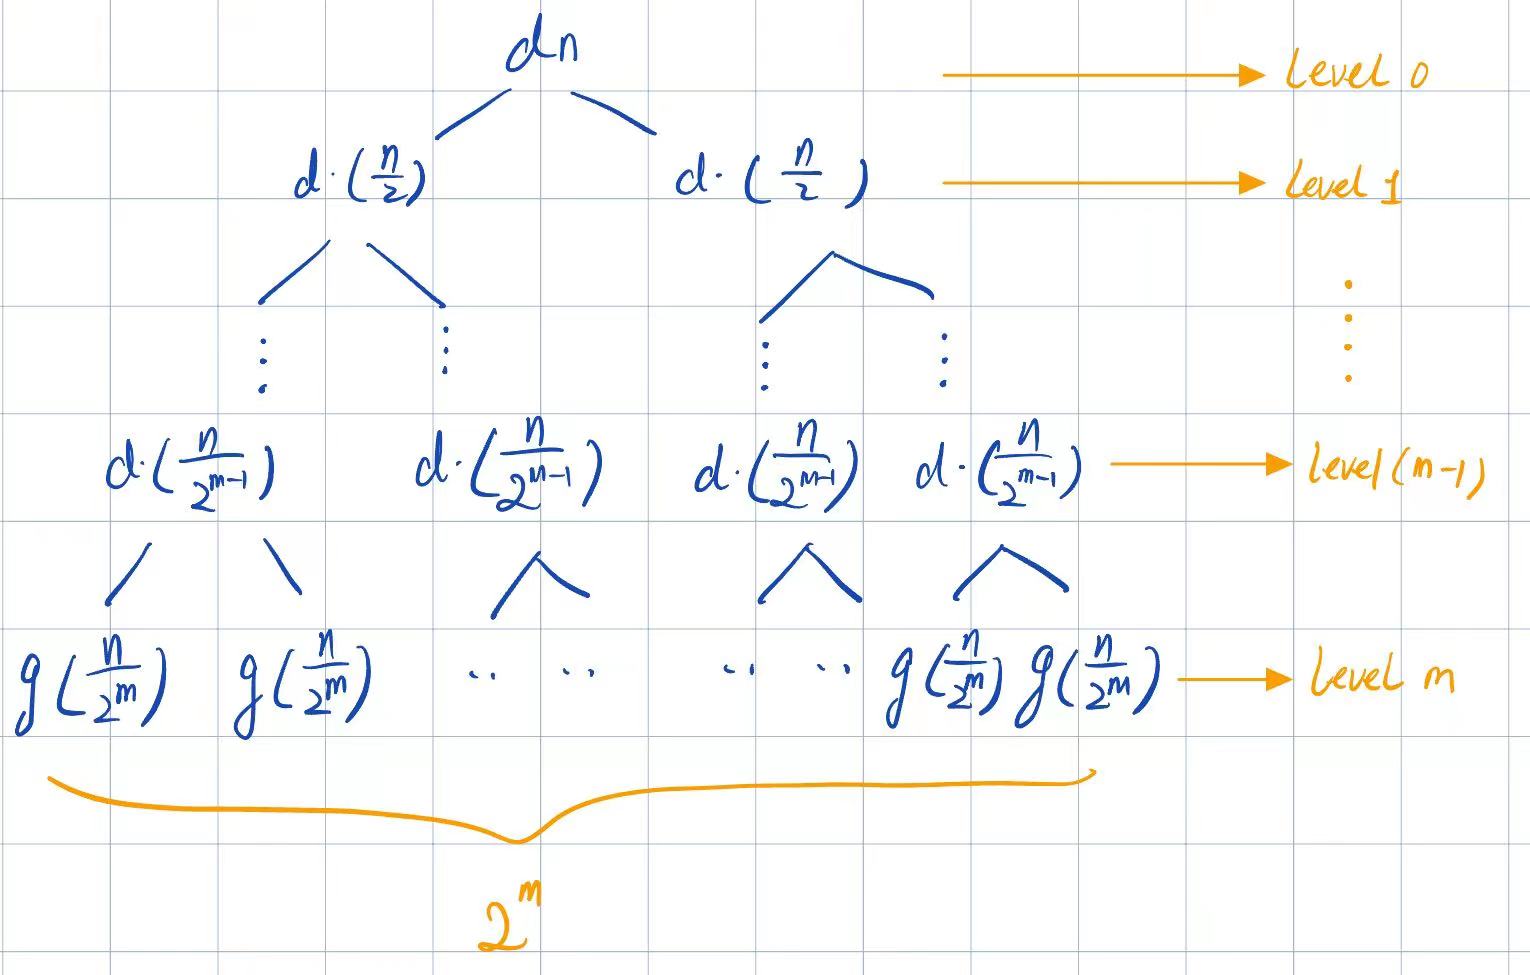 dn → Level 0
d·(n/2) d·(n/2) → Level 1
d·(n/2^(m-1)) d·(n/2^(m-1)) d·(n/2^(m-1)) d·(n/2^(m-1)) → Level (m-1)
g(n/2^m) g(n/2^m) .. .. .. .. g(n/2^m) g(n/2^m) → Level m
2^m